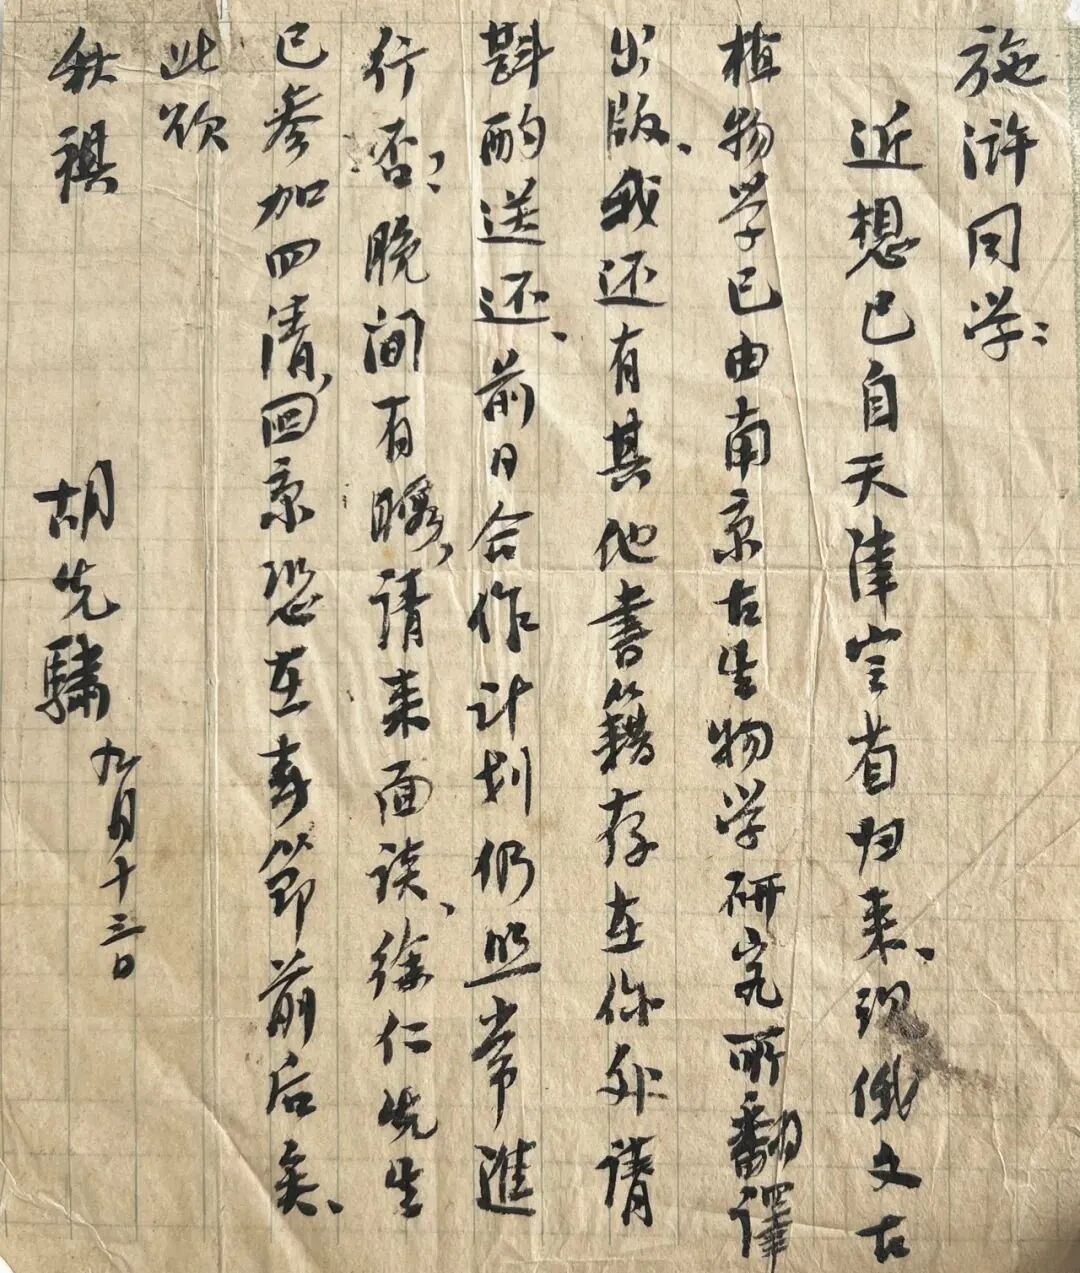 施浒同学：
近想已自天津宁省归来、现俄文古
植物学已由南京古生物学研究所翻譯
出版、我还有其他书籍存在你处请
斟酌送还、前日合作计划仍照常進
行否？晚间有暇、请来面谈、徐仁先生
已参加四清、回京恐在春节前后矣、
此颂
秋祺
胡先驌
九月十三日